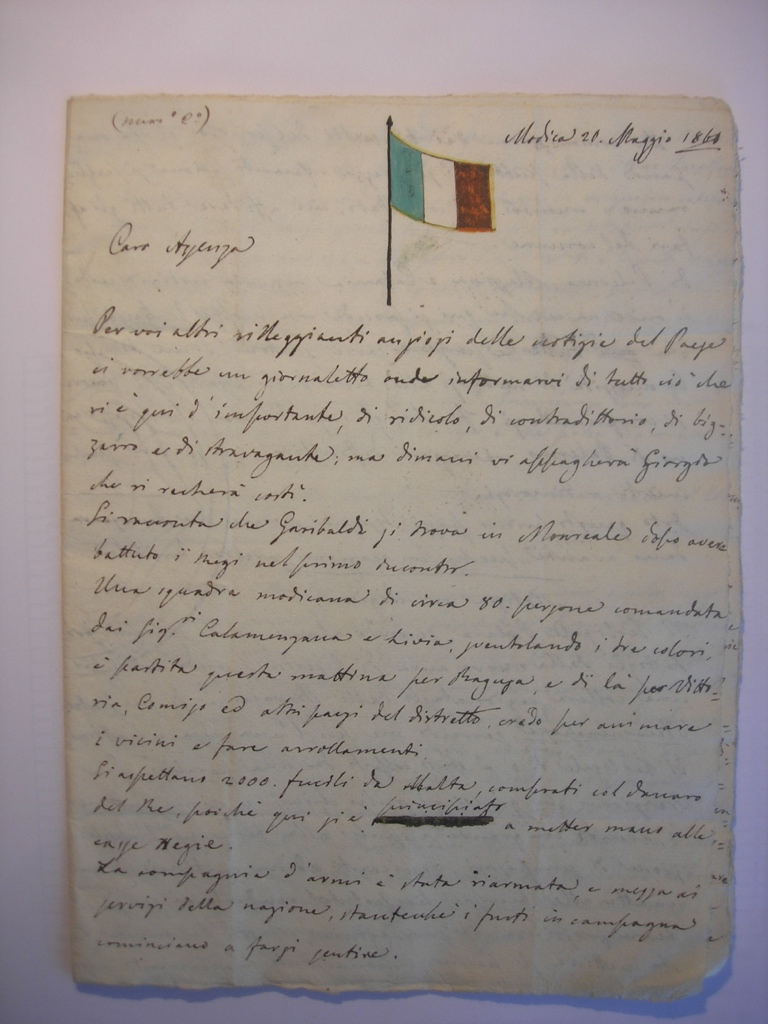 Modica 20. Maggio 1860
Caro
Per voi altri villeggianti ansiosi delle notizie del Paese
ci vorrebbe un giornaletto onde informarvi di tutto ciò che
vi è qui d'importante, di ridicolo, di contradittorio, di biz=
zarro e di stravagante; ma dimani vi appagherà Giorgio
che si recherà costì.
Si racconta che Garibaldi si trova in Monreale dopo avere
battuto i Regi nel primo incontro.
Una squadra modicana di circa 80. persone comandata
dai Sig.ri e Livia, sventolando i tre colori,
è partita questa mattina per Ragusa, e di là per Vitto=
ria, Comiso ed altri paesi del distretto, credo per animare
i vicini e fare arrollamenti.
Si aspettano 2000. fucili da Malta, comprati col danaro
del Re, poichè qui si è principiato a metter mano alle
casse Regie.
La compagnia d'armi è stata riarmata, e messa ai
servigi della nazione, stantechè i furti in campagna
cominciano a farsi sentire.